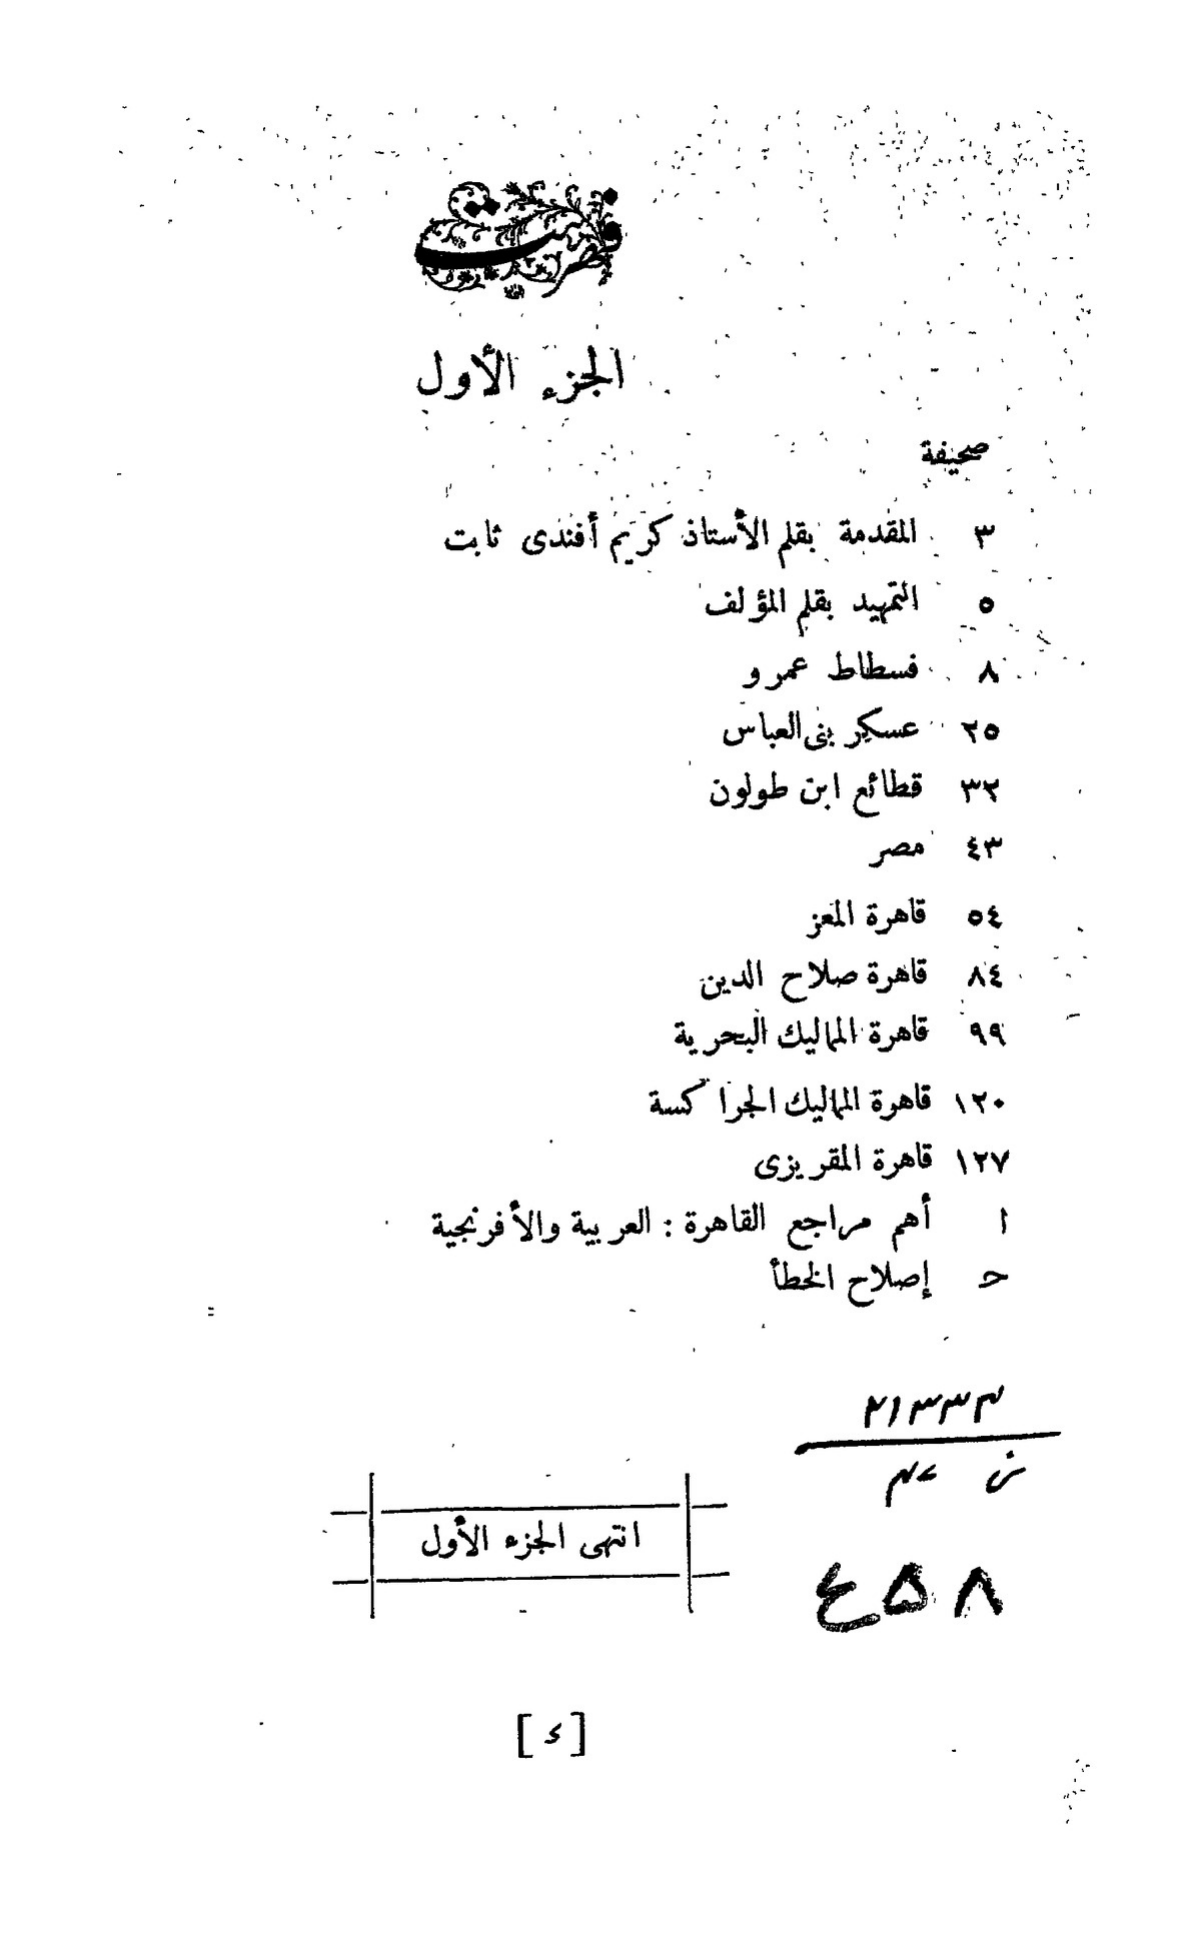 فهرست
الجزء الأول
صحيفة
٣ المقدمة بقلم الأستاذ كريم أفندى ثابت
٥ التمهيد بقلم المؤلف
٨ فسطاط عمرو
٢٥ عسكر بنى العباس
٣٢ قطائع ابن طولون
٤٣ مصر
٥٤ قاهرة المعز
٨٤ قاهرة صلاح الدين
٩٩ قاهرة المماليك البحرية
١٢٠ قاهرة المماليك الجراكسة
١٢٧ قاهرة المقريزى
ا أهم مراجع القاهرة : العربية والأفرنجية
حـ إصلاح الخطأ
انتهى الجزء الأول
٤٥٨
[ ء ]